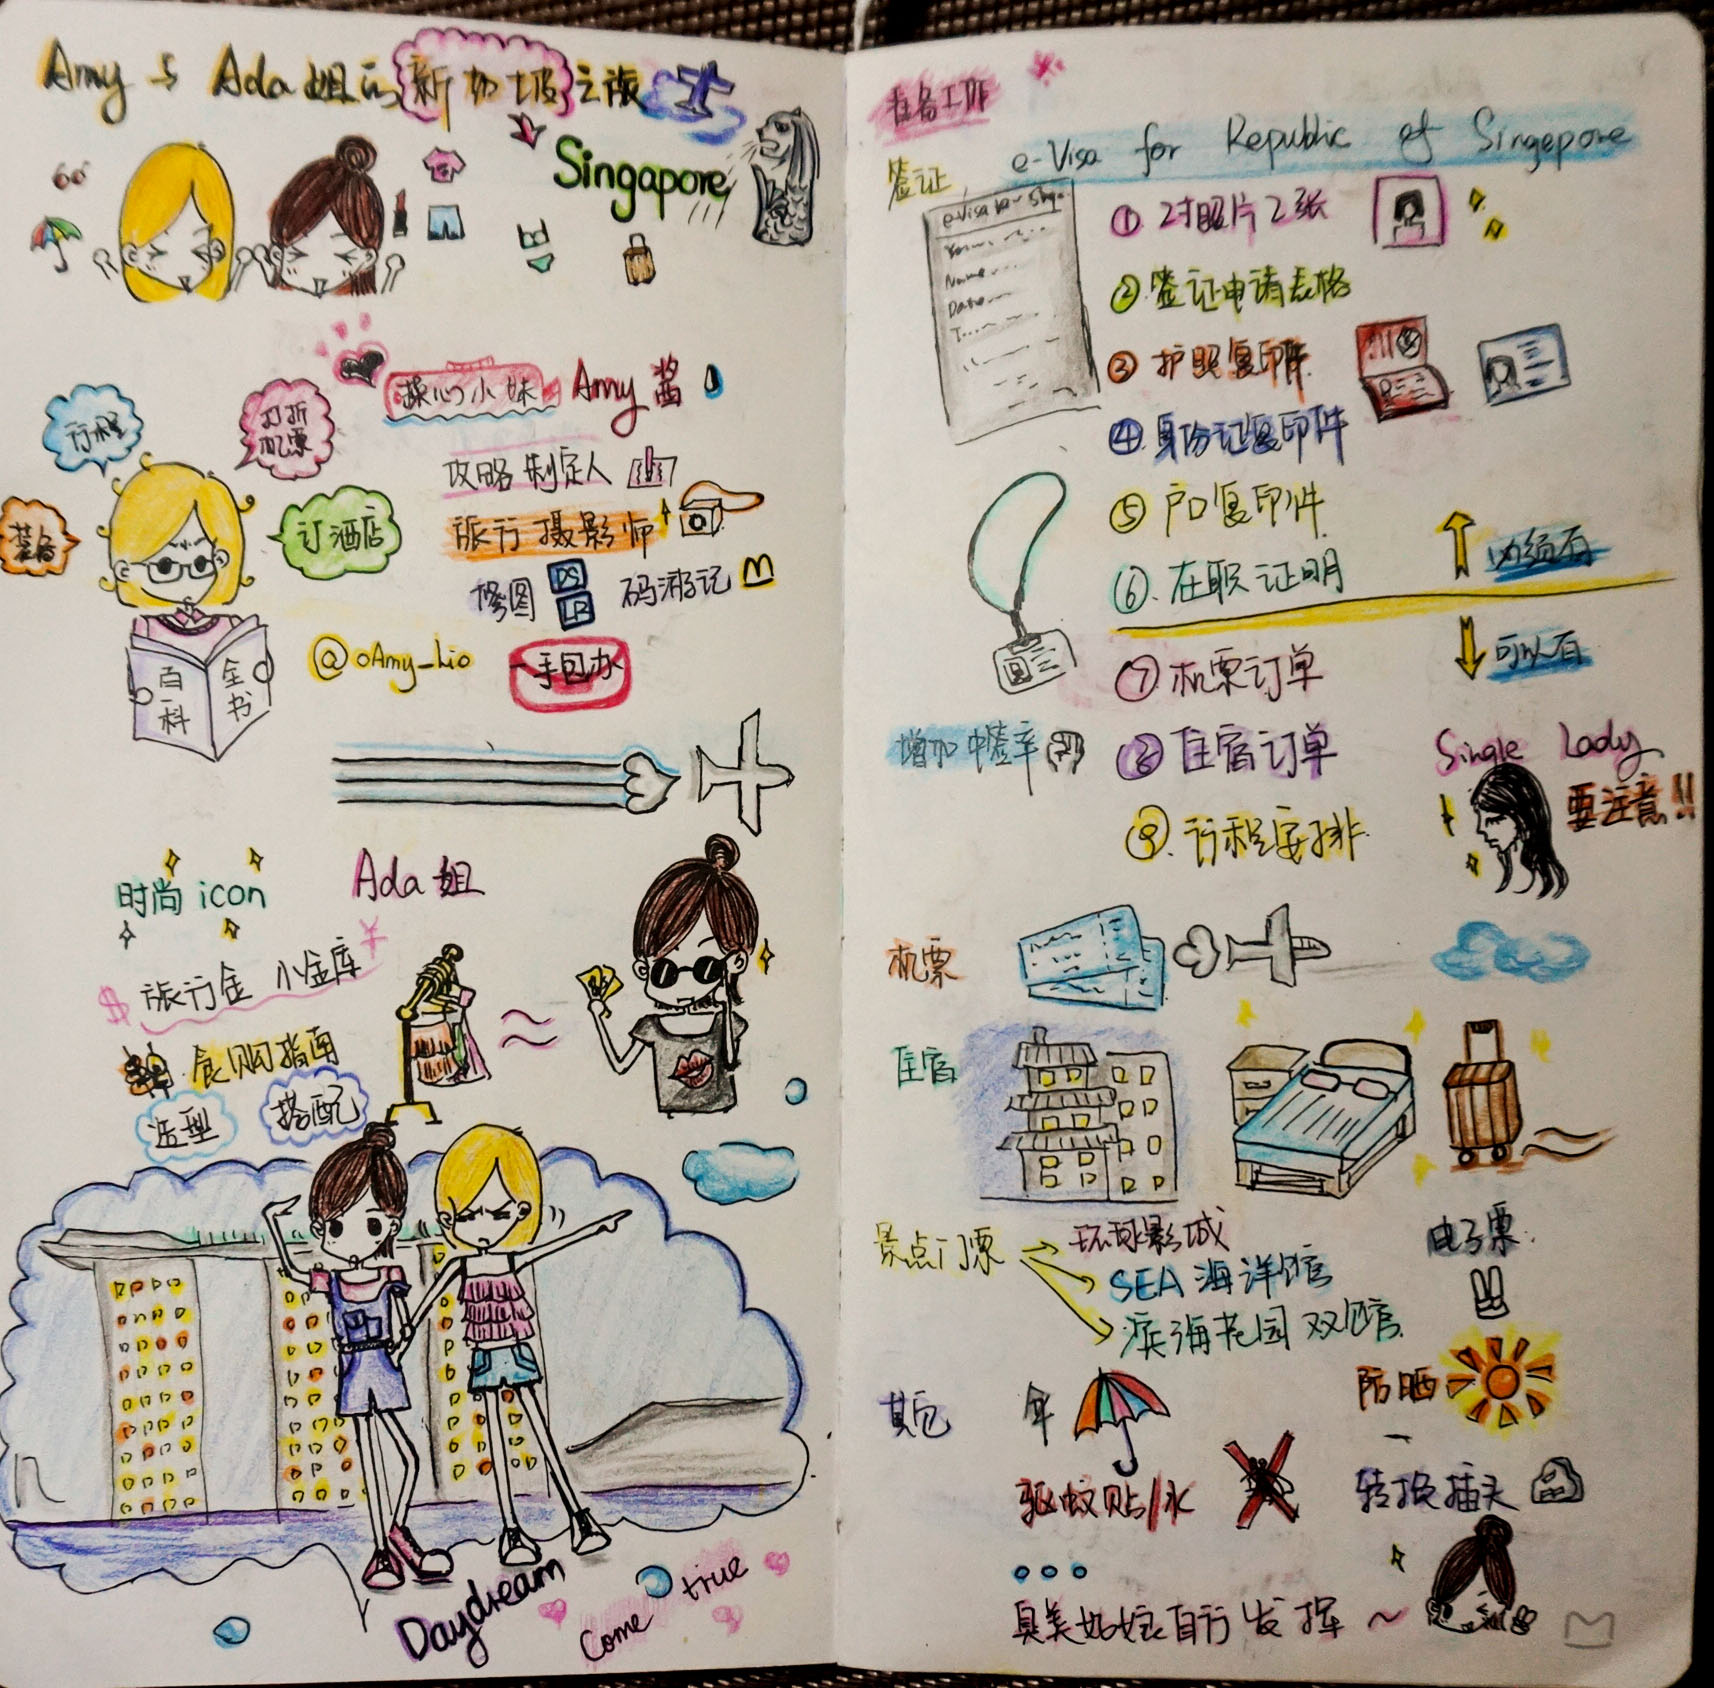 Amy与Ada姐的新加坡之旅
Singapore
操心小妹 Amy酱
行程
打折机票
攻略制定人
订酒店
旅行摄影师
修图 PS LR 码游记
@oAmy_Lio
一手包办
百科全书
时尚icon
Ada姐
$ 旅行金 小金库 ¥
食购指南
造型
搭配
Daydream
Come true
准备工作
签证
e-Visa for Republic of Singepore
Name
Date
① 2寸照片2张
② 签证申请表格
③ 护照复印件
④ 身份证复印件
⑤ 户口复印件
⑥ 在职证明
必须有
可以有
⑦ 机票订单
增加中签率
⑧ 住宿订单
⑨ 行程安排
Single Lady
要注意!!
机票
住宿
景点门票
环球影城
SEA海洋馆
滨海花园双馆
电子票
其它
伞
防晒
驱蚊贴/水
转换插头
具美姑娘自行发挥~